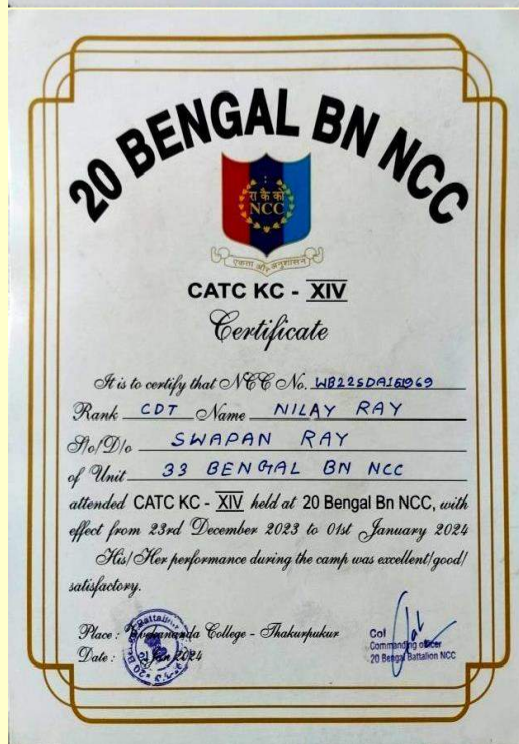 20 BENGAL BN NCC
रा कै को
NCC
एकता और अनुशासन
CATC KC - XIV
Certificate
It is to certify that NCC No. WB22SDA161969
Rank CDT Name NILAY RAY
S/o/D/o SWAPAN RAY
of Unit 33 BENGAL BN NCC
attended CATC KC - XIV held at 20 Bengal Bn NCC, with
effect from 23rd December 2023 to 01st January 2024
His/Her performance during the camp was excellent/good/
satisfactory.
Place : Vivekananda College - Thakurpukur
Date : Jan 2024
Col
Commanding officer
20 Bengal Battalion NCC